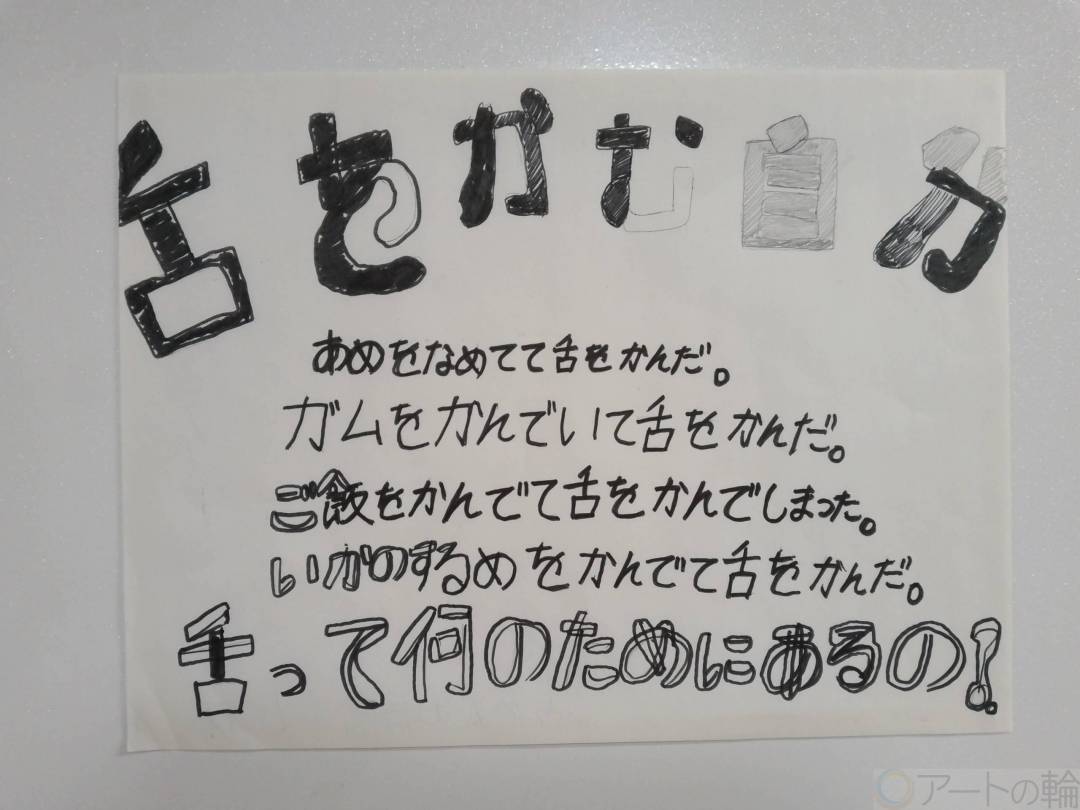 舌をかむ自分
あめをなめてて舌をかんだ。
ガムをかんでいて舌をかんだ。
ご飯をかんでて舌をかんでしまった。
いかのするめをかんでて舌をかんだ。
舌って何のためにあるの!
アートの輪